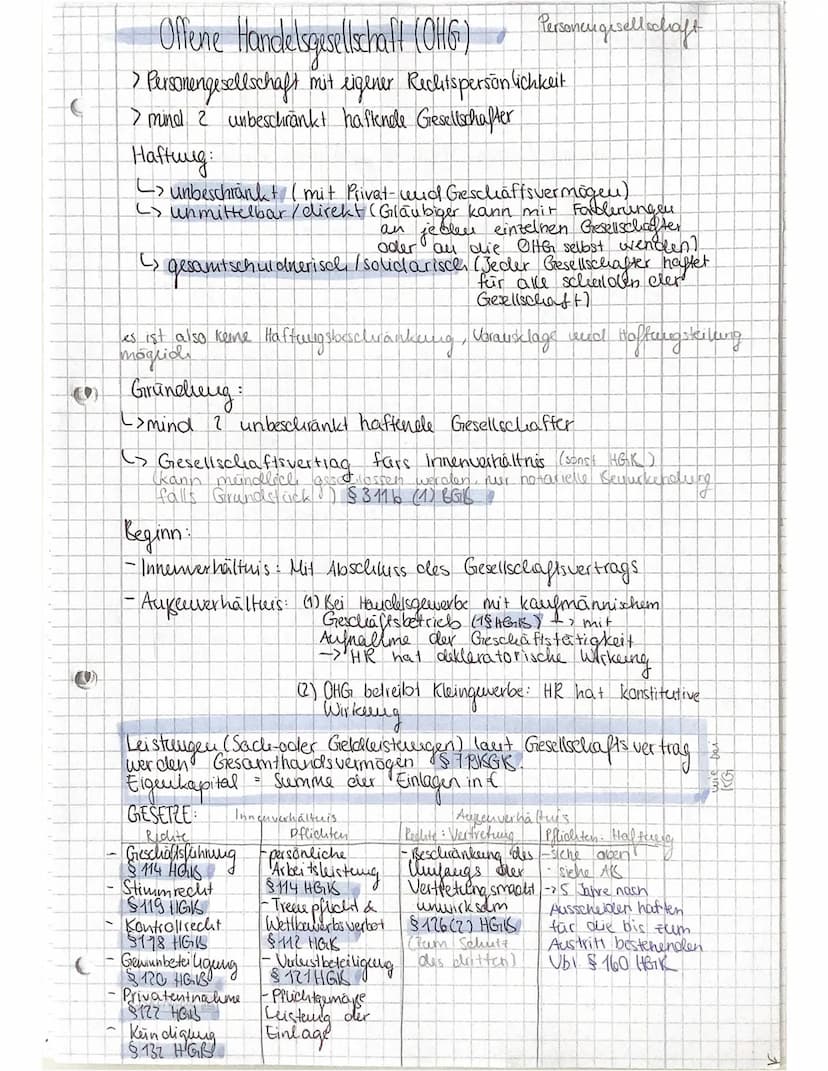 Offene Handelsgesellschaft (OHG)
Personengesellschaft
> Personengesellschaft mit eigener Rechtspersönlichkeit
> mind 2 unbeschränkt haftende Gesellschafter
Haftung:
↳ unbeschränkt (mit Privat- und Geschäftsvermögen)
↳ unmittelbar/direkt (Gläubiger kann mit Forderungen
an jeden einzelnen Gesellschafter
oder an die OHG selbst wenden)
↳ gesamtschuldnerisch/solidarisch (Jeder Gesellschafter haftet
für alle Schulden der
Gesellschaft)
es ist also keine Haftungsbeschränkung, Vorausklage und Haftungsteilung
möglich
Gründung:
↳ mind 2 unbeschränkt haftende Gesellschafter
↳ Gesellschaftsvertrag fürs Innenverhältnis (sonst HGB)
(kann mündlich geschlossen werden, nur notarielle Beurkundung
falls Grundstück) § 311b (1) BGB
Beginn:
- Innenverhältnis: Mit Abschluss des Gesellschaftsvertrags
- Außenverhältnis: (1) Bei Handelsgewerbe mit kaufmännischem
Geschäftsbetrieb (1§ HGB) → mit
Aufnahme der Geschäftstätigkeit
→ HR hat deklaratorische Wirkung
(2) OHG betreibt Kleingewerbe: HR hat konstitutive
Wirkung
Leistungen (Sach- oder Geldleistungen) laut Gesellschaftsvertrag
werden Gesamthandsvermögen
Eigenkapital = Summe der Einlagen in €
wie bei
KG
GESETZE: Innenverhältnis Außenverhältnis
Rechte Pflichten Rechte: Vertretung Pflichten: Haftung
- Geschäftsführung
§ 114 HGB
- Stimmrecht
§ 119 HGB
- Kontrollrecht
§ 118 HGB
- Gewinnbeteiligung
§ 120 HGB
- Privatentnahme
§ 122 HGB
- Kündigung
§ 132 HGB
- persönliche
Arbeitsleistung
§ 114 HGB
- Treuepflicht &
Wettbewerbsverbot
§ 112 HGB
- Verlustbeteiligung
§ 121 HGB
- Pflichtgemäße
Leistung der
Einlage
- Beschränkung des
Umfangs der
Vertretungsmacht
unwirksam
§ 126 (2) HGB
(zum Schutz
des dritten)
- siehe oben
- siehe AB
→ 5 Jahre nach
Ausscheiden haften
für die bis zum
Austritt bestehenden
Vbl § 160 HGB